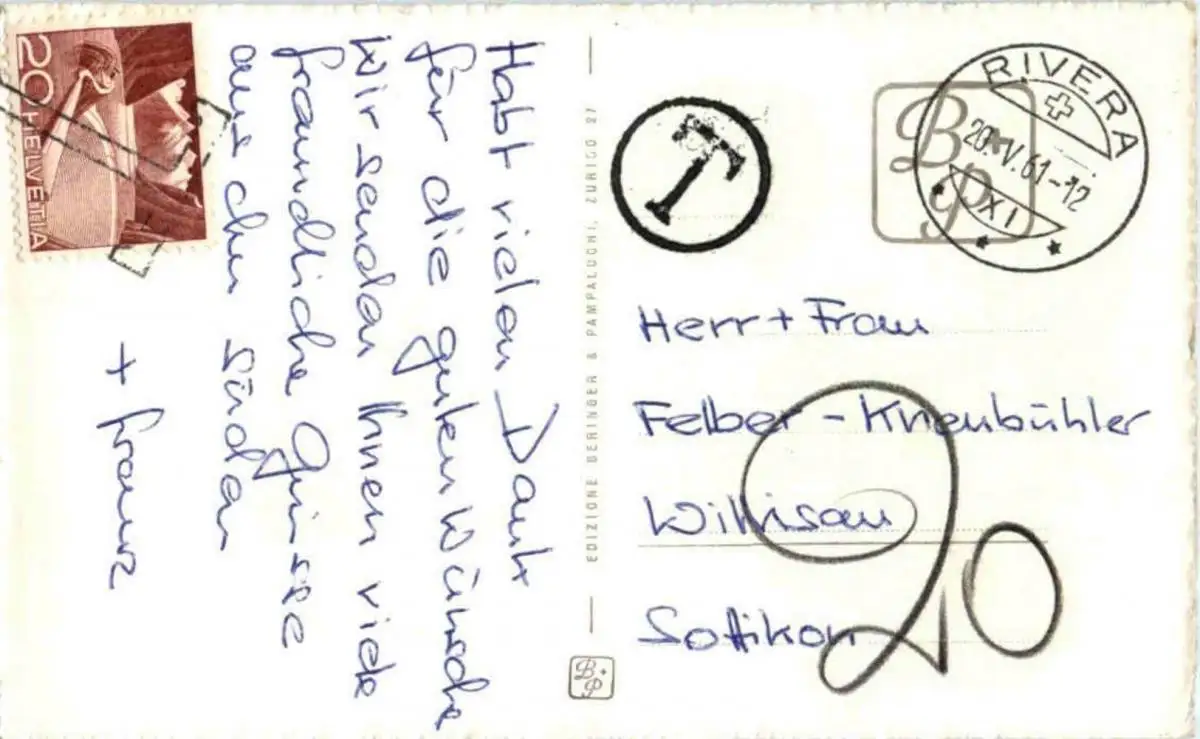 20 HELVETIA
Habt vielen Dank
für die guten Wünsche
Wir senden Ihnen viele
freundliche Grüsse
aus dem Süden
+ Franz
EDIZIONE BERINGER & PAMPALUCHI, ZURIGO 27
B+P
T
B+P
RIVERA
20. V. 61-12
XI
Herr + Frau
Felber - Kneubühler
Willisau
Sottikon
20